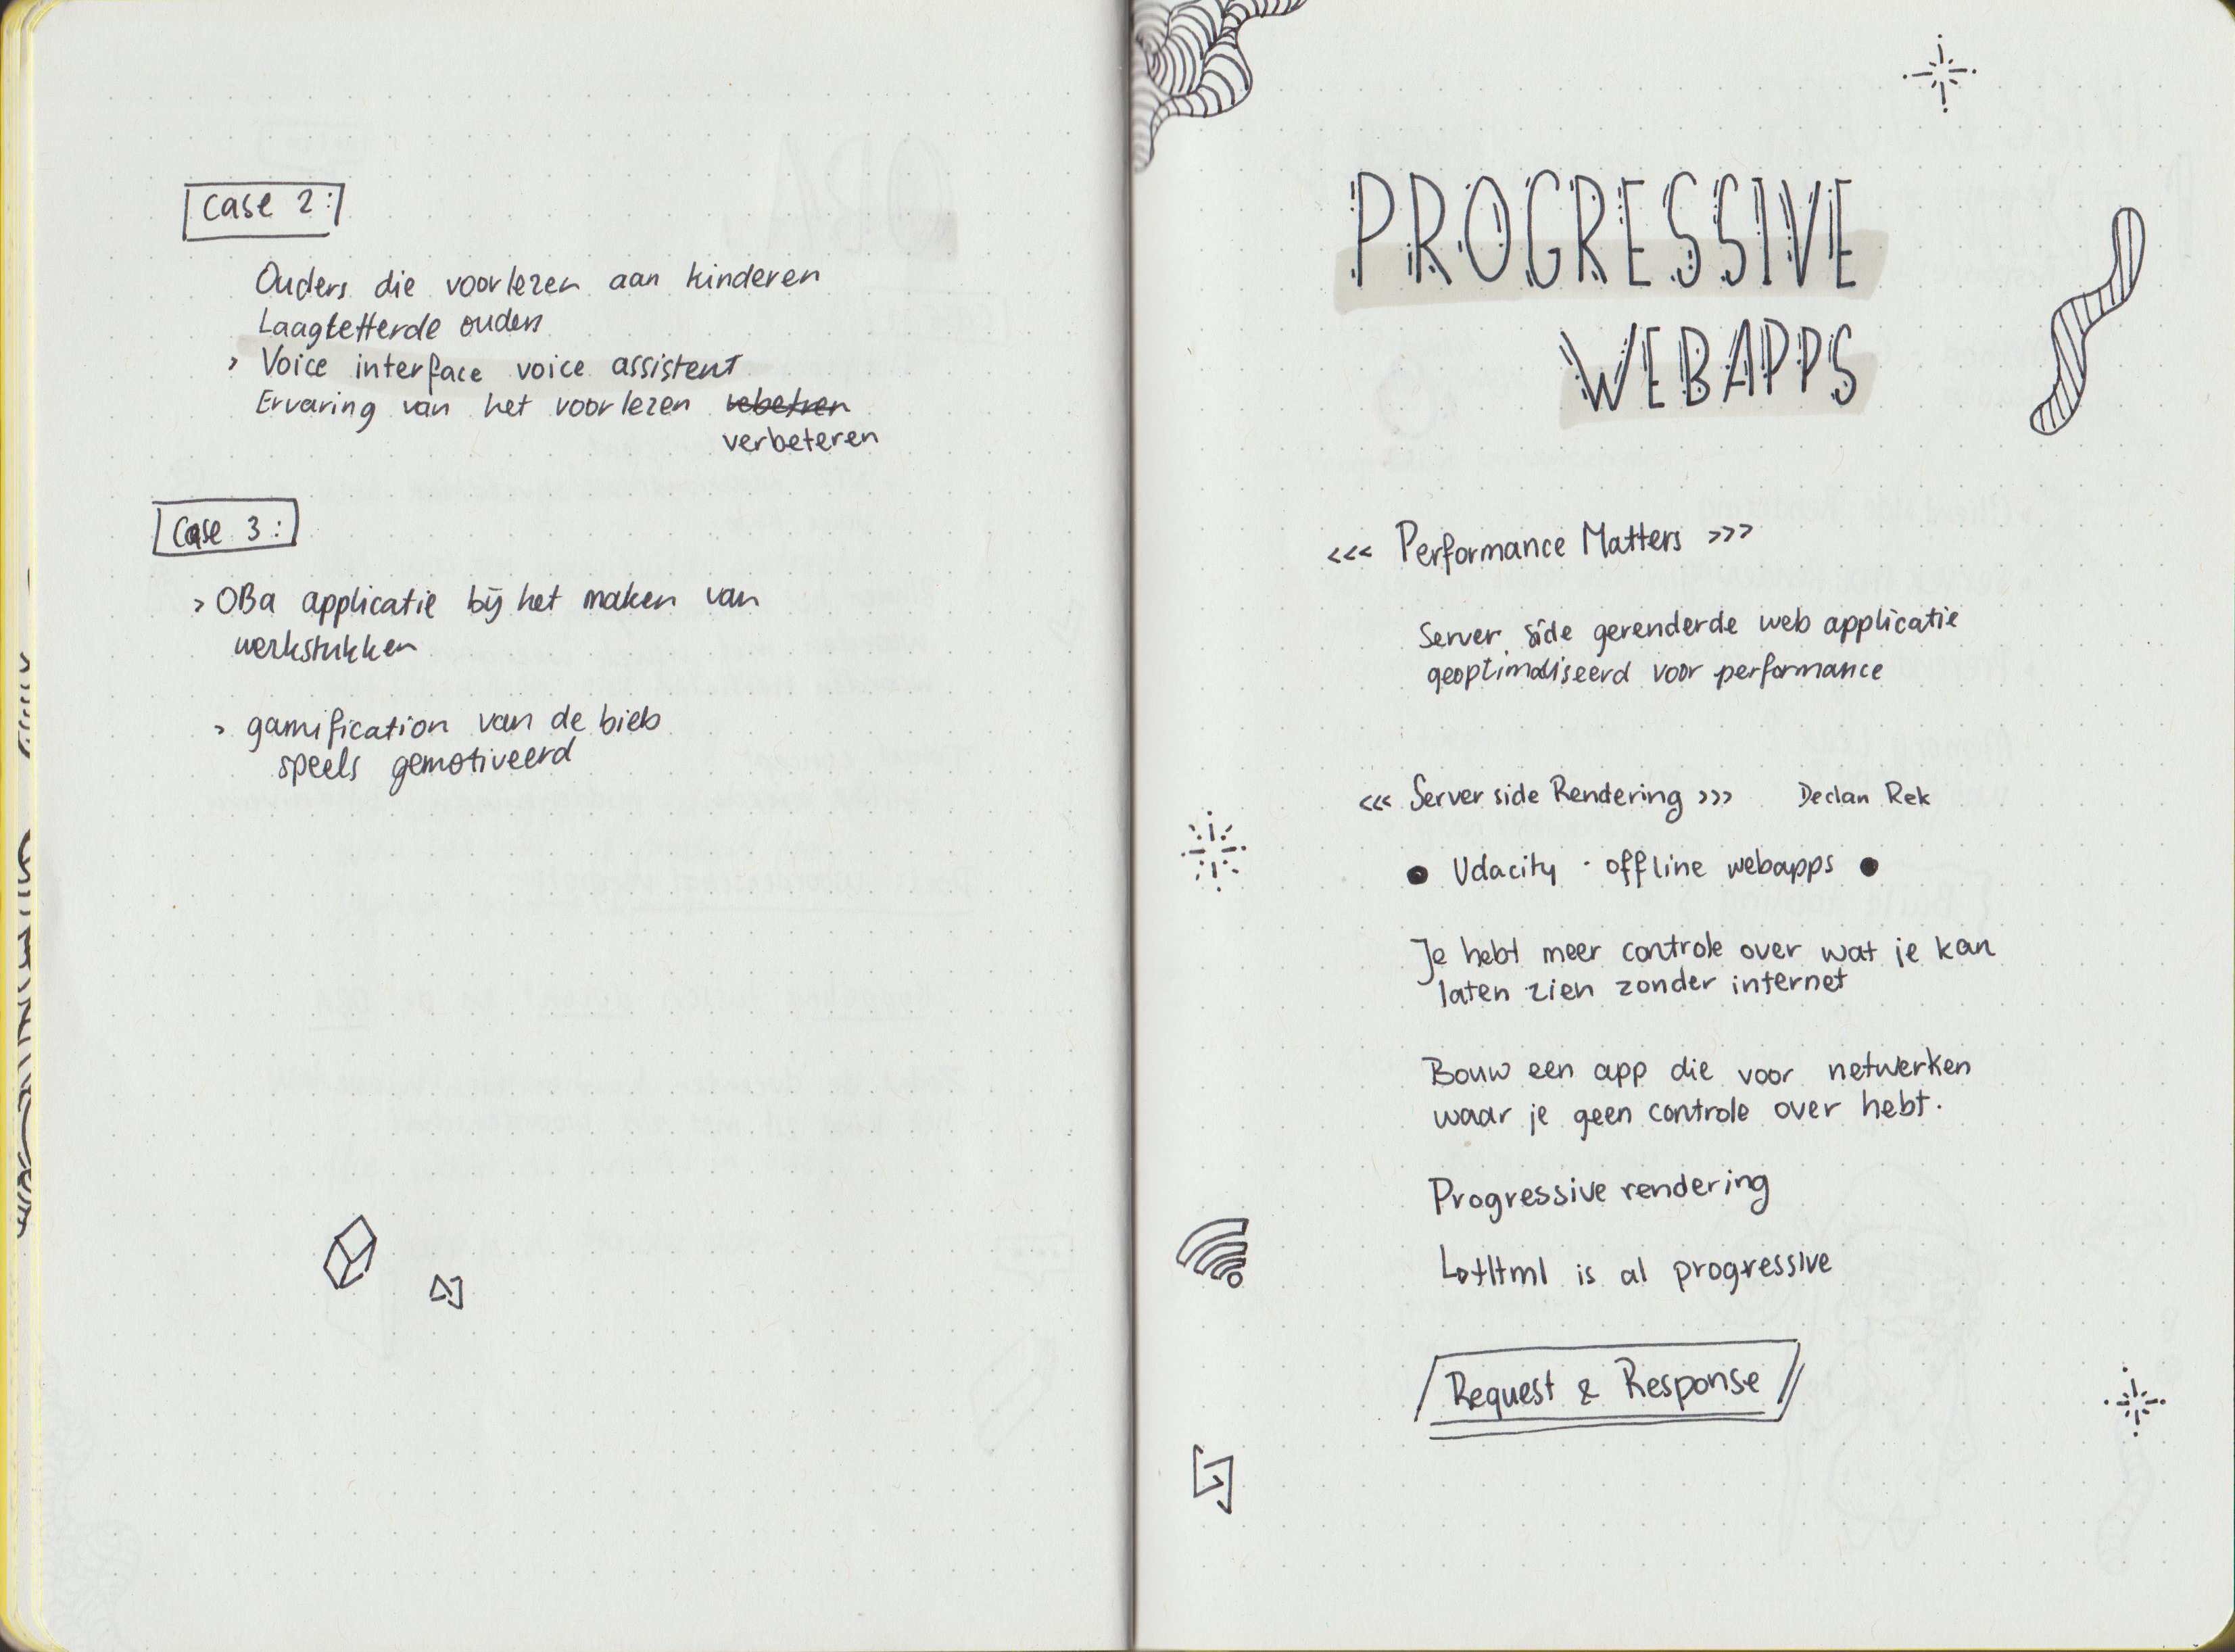 Case 2:
Ouders die voorlezen aan kinderen
Laagletterde ouders
> Voice interface voice assistent
Ervaring van het voorlezen vebetren
verbeteren
Case 3:
> OBa applicatie bij het maken van
werkstukken
> gamification van de bieb
speels gemotiveerd
PROGRESSIVE
WEBAPPS
<<< Performance Matters >>>
Server side gerenderde web applicatie
geoptimaliseerd voor performance
<<< Server side Rendering >>> Declan Rek
● Udacity · offline webapps ●
Je hebt meer controle over wat je kan
laten zien zonder internet
Bouw een app die voor netwerken
waar je geen controle over hebt.
Progressive rendering
Html is al progressive
Request & Response